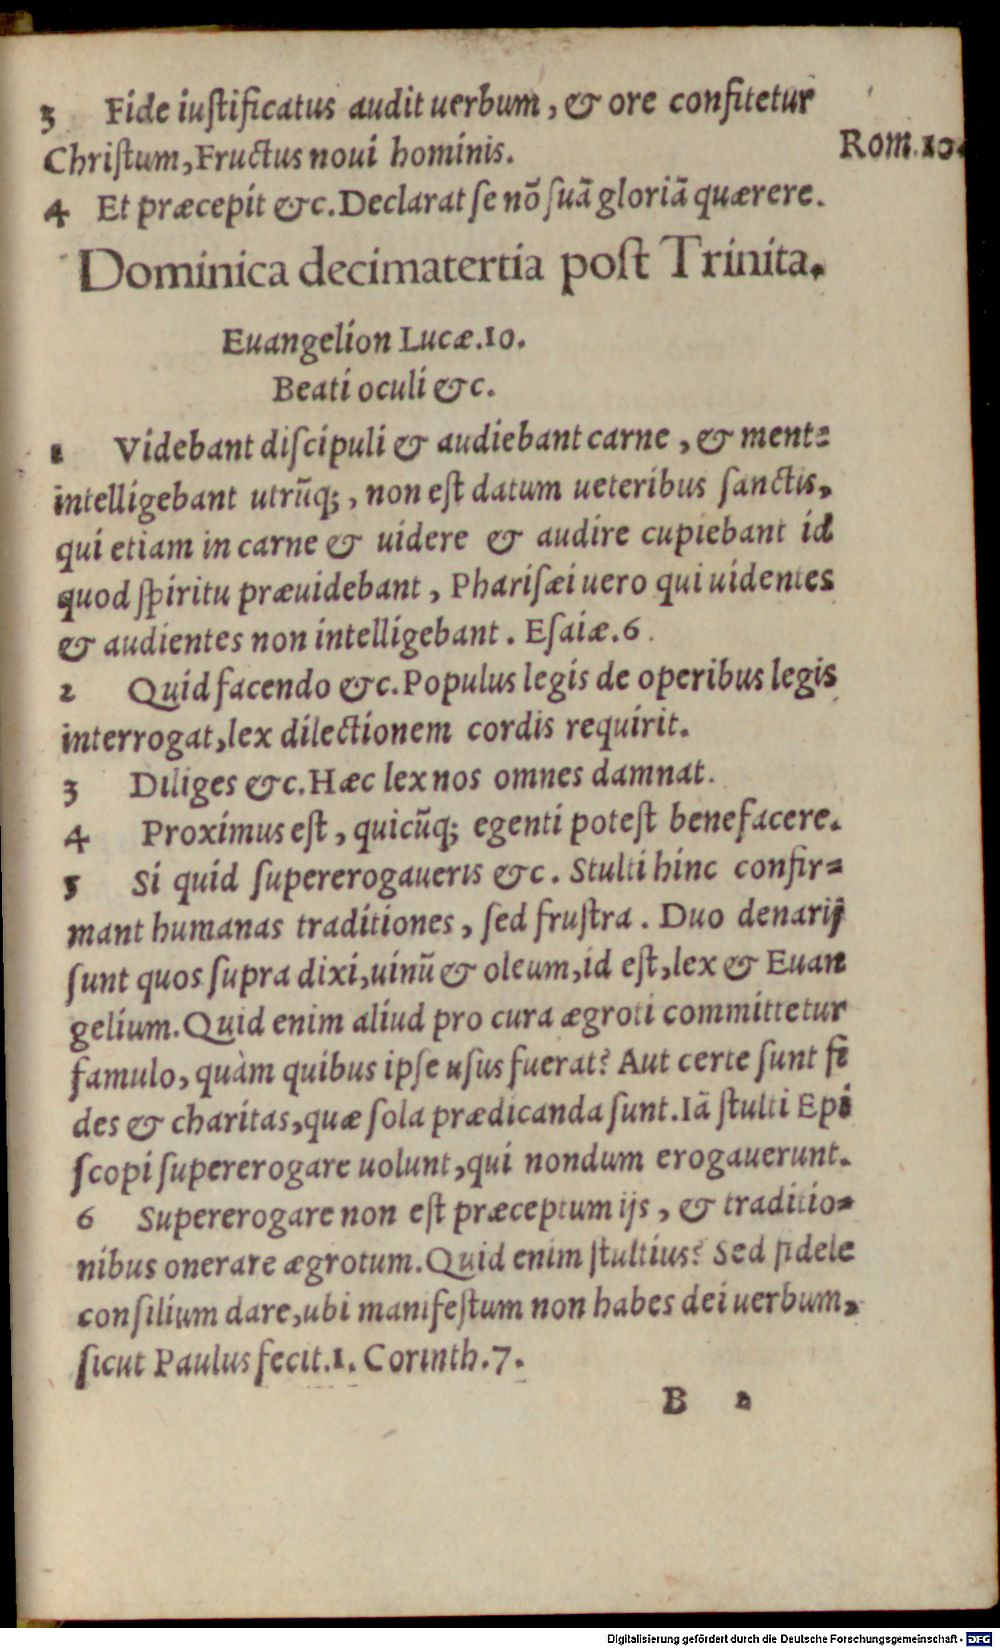 3 Fide iuſtificatus audit uerbum, & ore confitetur
Chriſtum, Fructus noui hominis.
Rom. 10.
4 Et præcepit &c. Declarat ſe nõ ſuã gloriã quærere.
Dominica decimatertia poſt Trinita.
Euangelion Lucæ. 10.
Beati oculi &c.
1 Videbant diſcipuli & audiebant carne, & mente
intelligebant utrũq;, non eſt datum ueteribus ſanctis,
qui etiam in carne & uidere & audire cupiebant id
quod ſpiritu præuidebant, Phariſæi uero qui uidentes
& audientes non intelligebant. Eſaiæ. 6.
2 Quid facendo &c. Populus legis de operibus legis
interrogat, lex dilectionem cordis requirit.
3 Diliges &c. Hæc lex nos omnes damnat.
4 Proximus eſt, quicũq; egenti poteſt benefacere.
5 Si quid ſupererogaueris &c. Stulti hinc confir⸗
mant humanas traditiones, ſed fruſtra. Duo denarij
ſunt quos ſupra dixi, uinũ & oleum, id eſt, lex & Euan
gelium. Quid enim aliud pro cura ægroti committetur
famulo, quàm quibus ipſe uſus fuerat? Aut certe ſunt fi
des & charitas, quæ ſola prædicanda ſunt. Iã ſtulti Epi
ſcopi ſupererogare uolunt, qui nondum erogauerunt.
6 Supererogare non eſt præceptum ijs, & traditio⸗
nibus onerare ægrotum. Quid enim ſtultius? Sed fidele
conſilium dare, ubi manifeſtum non habes dei uerbum,
ſicut Paulus fecit. 1. Corinth. 7.
B 2
Digitalisierung gefördert durch die Deutsche Forschungsgemeinschaft - DFG